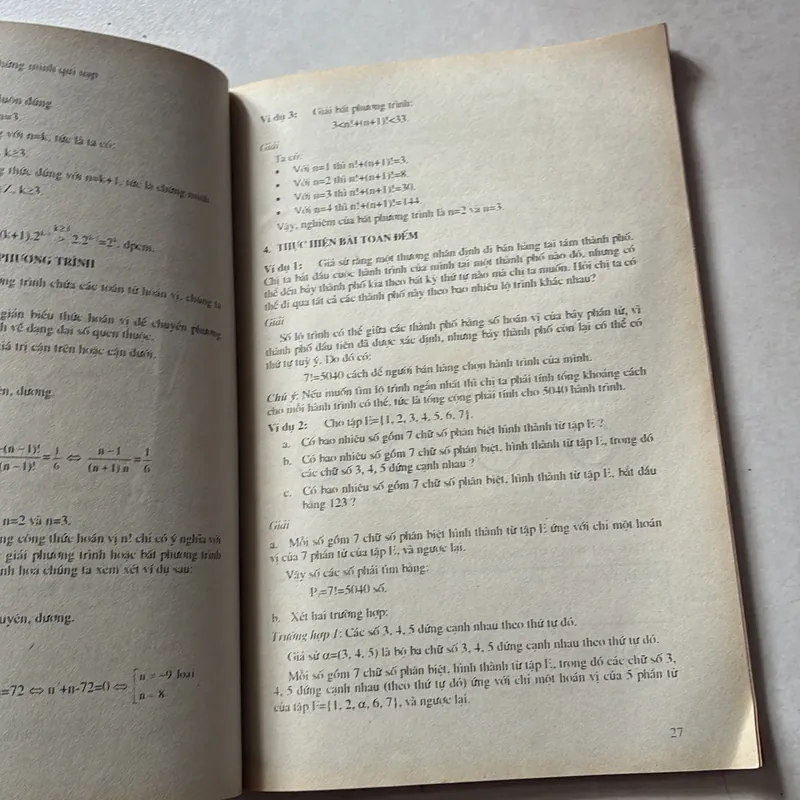 chứng minh qui nạp
luôn đúng
n=3.
g với n=k, tức là ta có:
k≥3.
g thức đúng với n=k+1, tức là chứng minh:
k≥3.
(k+1).2ᵏ⁻¹ k≥3 > 2.2ᵏ⁻¹=2ᵏ, đpcm.
PHƯƠNG TRÌNH
ng trình chứa các toán tử hoán vị, chúng ta
giản biểu thức hoán vị để chuyển phương
h về dạng đại số quen thuộc.
iá trị cận trên hoặc cận dưới.
ên, dương.
-(n−1)!/(n−1)! = 1/6 ⇔ n−1/(n+1)n = 1/6
n=2 và n=3.
ng công thức hoán vị n! chỉ có ý nghĩa với
giải phương trình hoặc bất phương trình
inh hoạ chúng ta xem xét ví dụ sau:
uyên, dương.
=72 ⇔ n²+n-72=0 ⇔ [n = −9 loại
n = 8
Ví dụ 3: Giải bất phương trình:
3<n!+(n+1)!<33.
Giải
Ta có:
• Với n=1 thì n!+(n+1)!=3.
• Với n=2 thì n!+(n+1)!=8.
• Với n=3 thì n!+(n+1)!=30.
• Với n=4 thì n!+(n+1)!=144.
Vậy, nghiệm của bất phương trình là n=2 và n=3.
4. THỰC HIỆN BÀI TOÁN ĐẾM
Ví dụ 1: Giả sử rằng một thương nhân định đi bán hàng tại tám thành phố.
Chị ta bắt đầu cuộc hành trình của mình tại một thành phố nào đó, nhưng có
thể đến bảy thành phố kia theo bất kỳ thứ tự nào mà chị ta muốn. Hỏi chị ta có
thể đi qua tất cả các thành phố này theo bao nhiêu lộ trình khác nhau?
Giải
Số lộ trình có thể giữa các thành phố bằng số hoán vị của bảy phần tử, vì
thành phố đầu tiên đã được xác định, nhưng bảy thành phố còn lại có thể có
thứ tự tuỳ ý. Do đó có:
7!=5040 cách để người bán hàng chọn hành trình của mình.
Chú ý: Nếu muốn tìm lộ trình ngắn nhất thì chị ta phải tính tổng khoảng cách
cho mỗi hành trình có thể, tức là tổng cộng phải tính cho 5040 hành trình.
Ví dụ 2: Cho tập E={1, 2, 3, 4, 5, 6, 7}.
a. Có bao nhiêu số gồm 7 chữ số phân biệt hình thành từ tập E ?
b. Có bao nhiêu số gồm 7 chữ số phân biệt, hình thành từ tập E, trong đó
các chữ số 3, 4, 5 đứng cạnh nhau ?
c. Có bao nhiêu số gồm 7 chữ số phân biệt, hình thành từ tập E, bắt đầu
bằng 123 ?
Giải
a. Mỗi số gồm 7 chữ số phân biệt hình thành từ tập E ứng với chỉ một hoán
vị của 7 phần tử của tập E, và ngược lại.
Vậy số các số phải tìm bằng:
P₇=7!=5040 số.
b. Xét hai trường hợp:
Trường hợp 1: Các số 3, 4, 5 đứng cạnh nhau theo thứ tự đó.
Giả sử α=(3, 4, 5) là bộ ba chữ số 3, 4, 5 đứng cạnh nhau theo thứ tự đó.
Mỗi số gồm 7 chữ số phân biệt, hình thành từ tập E, trong đó các chữ số 3,
4, 5 đứng cạnh nhau (theo thứ tự đó) ứng với chỉ một hoán vị của 5 phần tử
của tập F={1, 2, α, 6, 7}, và ngược lại.
27